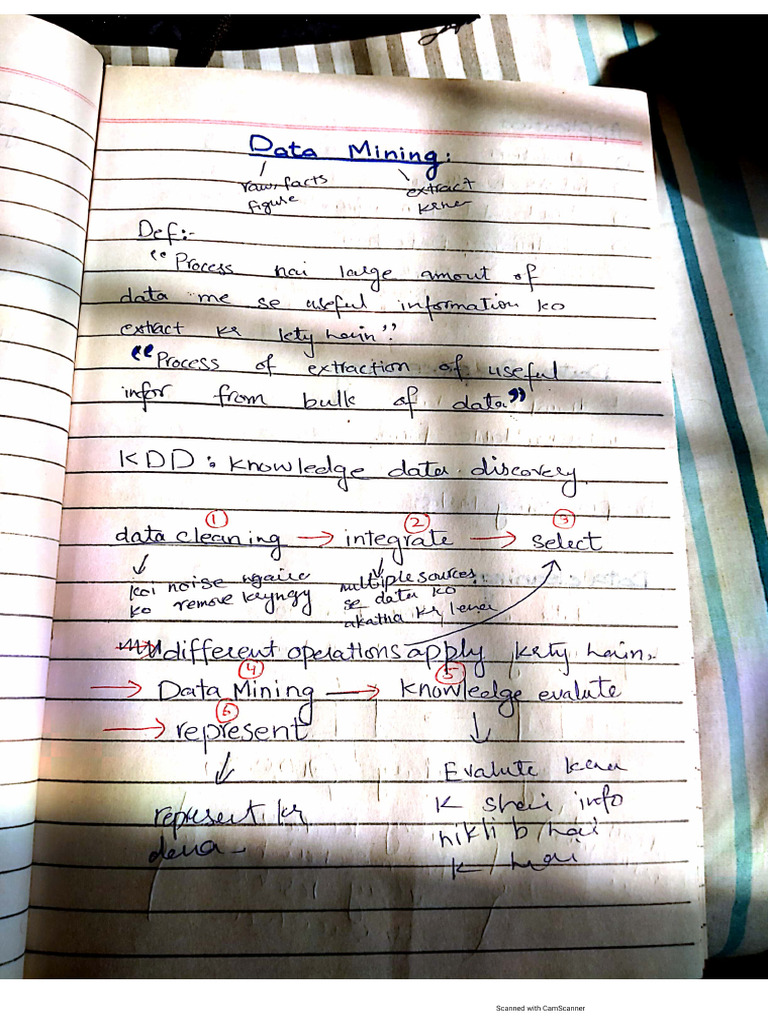 Data Mining:
raw, facts
figure
extract
krna
Def:-
"Process hai large amout of
data me se useful information ko
extract kr lety hain".
"Process of extraction of useful
infor from bulk of data"
KDD: knowledge data discovery
① ② ③
data cleaning → integrate → select
koi noise
ko remove
multiple sources
se data ko
akatha kr lena
different operations apply krty hain.
④ ⑤
→ Data Mining → knowledge evalute
⑥
→ represent
represent kr
dena
Evalute krna
k shai info
nikli b hai
k
Scanned with CamScanner